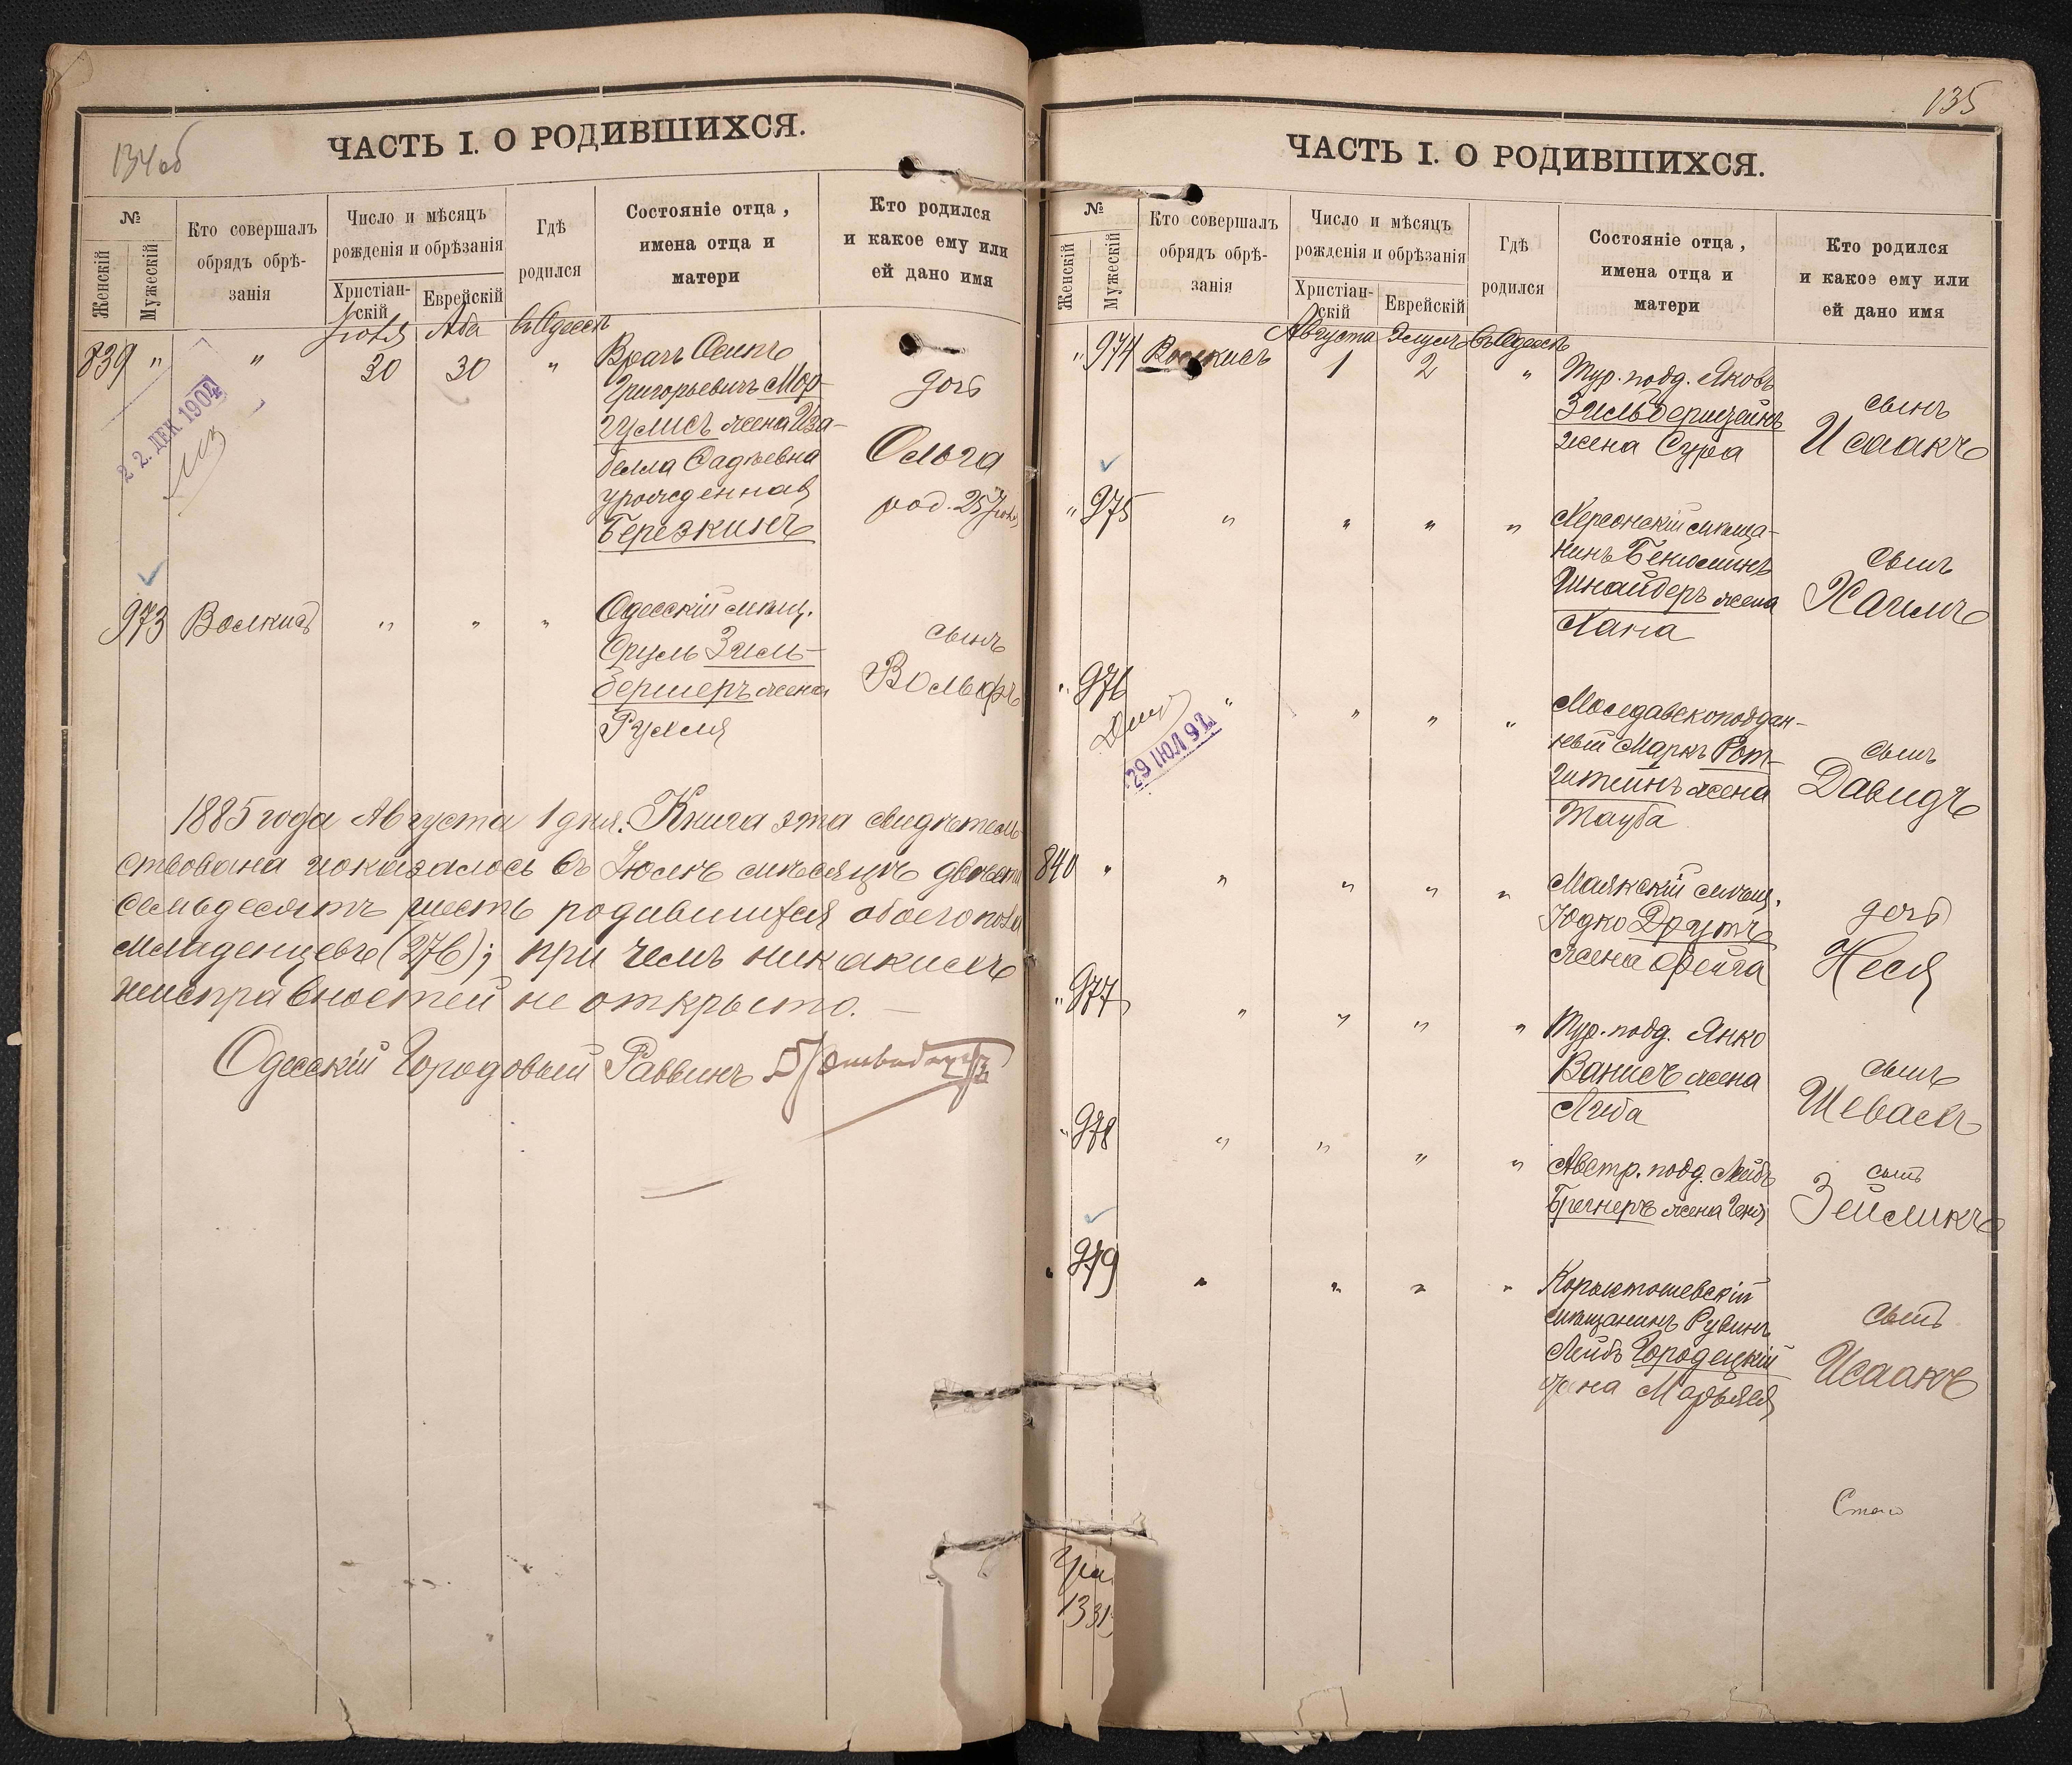 134 об
ЧАСТЬ I. О РОДИВШИХСЯ.
№
Женскій
Мужескій
Кто совершалъ
обрядъ обрѣ-
занія
Число и мѣсяцъ
рожденія и обрѣзанія
Христіан-
скій
Еврейскій
Гдѣ
родился
Состояніе отца,
имена отца и
матери
Кто родился
и какое ему или
ей дано имя
Іюля Аба въ Одессѣ
839 " " 30 30 "
Врачъ Осипъ
Григорьевичъ Мор-
гулисъ жена Иза-
белла Фадѣевна
урожденная
Березкинъ
дочь
Ольга
род. 25 Іюля
22. ДЕК 1904
973 Волкисъ " " "
Одесскій мѣщ.
Сруль Зиль-
бершеръ жена
Рухля
сынъ
Вольфъ
1885 года Августа 1 дня. Книга эта свидѣтель-
ствована и оказалось въ Іюлѣ мѣсяцѣ двѣсти
семьдесятъ шесть родившихся обоего пола
младенцевъ (276); при чемъ никакихъ
неисправностей не открыто.—
Одесскій Городовый Раввинъ
135
ЧАСТЬ I. О РОДИВШИХСЯ.
№
Женскій
Мужескій
Кто совершалъ
обрядъ обрѣ-
занія
Число и мѣсяцъ
рожденія и обрѣзанія
Христіан-
скій
Еврейскій
Гдѣ
родился
Состояніе отца,
имена отца и
матери
Кто родился
и какое ему или
ей дано имя
Августа Элулъ въ Одессѣ
" 974 Волкисъ 1 2 "
Тур. подд. Яковъ
Зильберштейнъ
жена Сура
сынъ
Исаакъ
" 975 " " " "
Херсонскій мѣща-
нинъ Беніоминъ
Шнайдеръ жена
Хана
сынъ
Хаимъ
" 976 " " " "
29 ІЮЛ 92
Молдавскоподдан-
ный Маркъ Рот-
штейнъ жена
Тауба
сынъ
Давидъ
840 " " " " "
Маякскій мѣщ.
Юдко Друтъ
жена Фейга
дочь
Неся
" 977 " " " "
Тур. подд. Янко
Ванисъ жена
Либа
сынъ
Шеваскъ
" 978 " " " "
Австр. подд. Лейбъ
Брегнеръ жена Геня
сынъ
Зейликъ
" 979 " " " "
мѣщанинъ Рувинъ
Лейбъ Городецкій
жена Марьяся
сынъ
Исаакъ